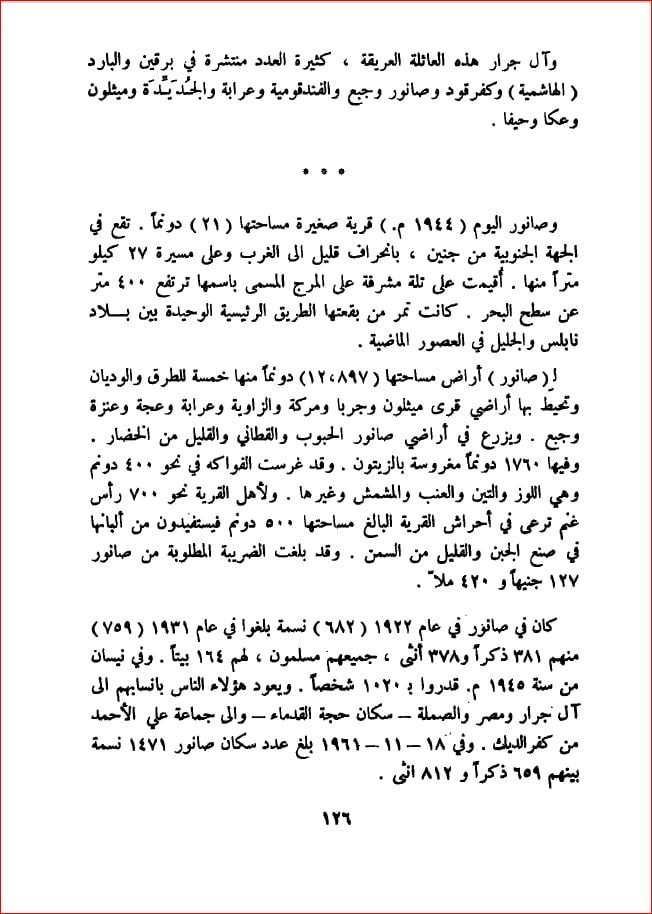 وآل جرار هذه العائلة العريقة ، كثيرة العدد منتشرة في برقين والبارد
( الهاشمية ) وكفرقود وصانور وجبع والفندقومية وعرابة والجُدَيِّدَة وميثلون
وعكا وحيفا .
* * *
وصانور اليوم ( ١٩٤٤ م. ) قرية صغيرة مساحتها ( ٢١ ) دونماً . تقع في
الجهة الجنوبية من جنين ، بانحراف قليل الى الغرب وعلى مسيرة ٢٧ كيلو
متراً منها . أُقيمت على تلة مشرفة على المرج المسمى باسمها ترتفع ٤٠٠ متر
عن سطح البحر . كانت تمر من بقعتها الطريق الرئيسية الوحيدة بين بـــلاد
نابلس والجليل في العصور الماضية .
لـ ( صانور ) أراض مساحتها ( ١٢،٨٩٧ ) دونماً منها خمسة للطرق والوديان
وتحيط بها أراضي قرى ميثلون وجربا ومركة والزاوية وعرابة وعجة وعنزة
وجبع . ويزرع في أراضي صانور الحبوب والقطاني والقليل من الخضار .
وفيها ١٧٦٠ دونماً مغروسة بالزيتون . وقد غرست الفواكه في نحو ٤٠٠ دونم
وهي اللوز والتين والعنب والمشمش وغيرها . ولأهل القرية نحو ٧٠٠ رأس
غنم ترعى في أحراش القرية البالغ مساحتها ٥٠٠ دونم فيستفيدون من ألبانها
في صنع الجبن والقليل من السمن . وقد بلغت الضريبة المطلوبة من صانور
١٢٧ جنيهاً و ٤٢٠ ملاً .
كان في صانور في عام ١٩٢٢ ( ٦٨٢ ) نسمة بلغوا في عام ١٩٣١ ( ٧٥٩ )
منهم ٣٨١ ذكراً و٣٧٨ أنثى ، جميعهم مسلمون ، لهم ١٦٤ بيتاً . وفي نيسان
من سنة ١٩٤٥ م. قدروا بـ ١٠٢٠ شخصاً . ويعود هؤلاء الناس بانسابهم الى
آل جرار ومصر والصملة – سكان حجة القدماء – والى جماعة علي الأحمد
من كفرالديك . وفي ١٨ – ١١ – ١٩٦١ بلغ عدد سكان صانور ١٤٧١ نسمة
بينهم ٦٥٩ ذكراً و ٨١٢ انثى .
١٢٦